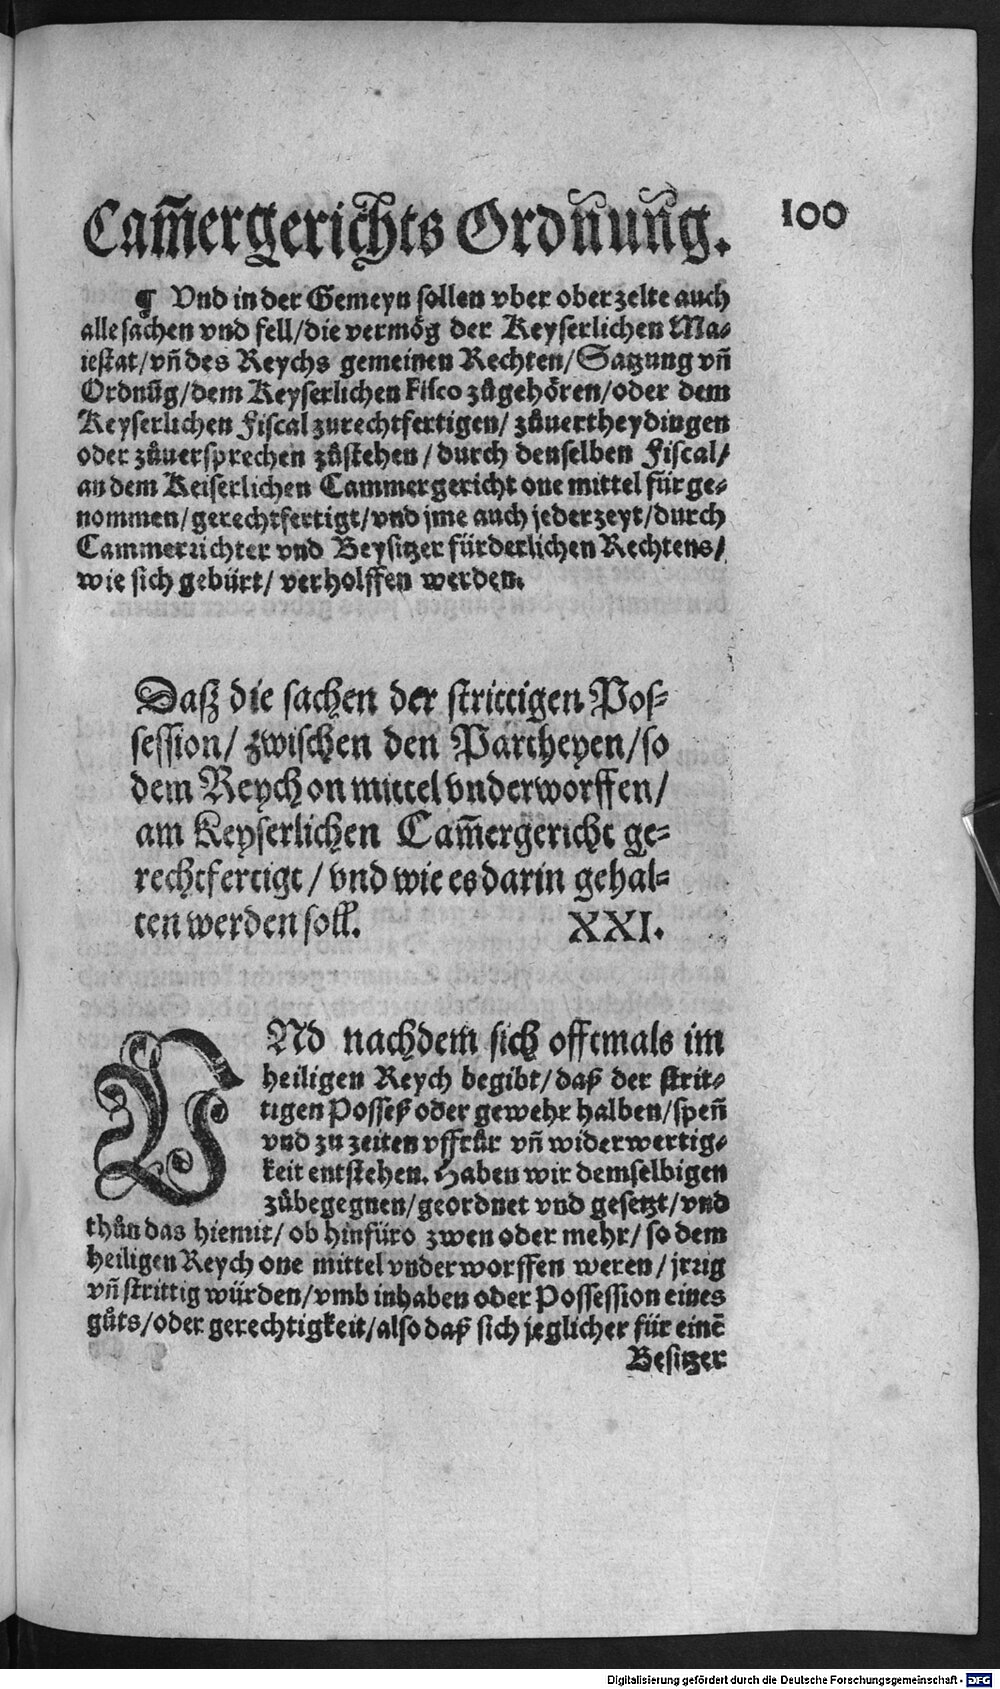 Cam̃ergerichts Ordnung.
100
¶ Vnd in der Gemeyn sollen vber oberzelte auch
alle sachen vnd fell/die vermög der Keyserlichen Ma-
iestat/vñ des Reychs gemeinen Rechten/Satzung vñ
Ordnũg/dem Keyserlichen Fisco zůgehören/oder dem
Keyserlichen Fiscal zurechtfertigen/ zůuertheydingen
oder zůuersprechen zůstehen/durch denselben Fiscal/
an dem Keiserlichen Cammergericht one mittel fürge-
nommen/gerechtfertigt/vnd jme auch jederzeyt/durch
Cammerrichter vnd Beysitzer fürderlichen Rechtens/
wie sich gebürt/ verholffen werden.
Daß die sachen der strittigen Pos-
session/ zwischen den Partheyen/so
dem Reych on mittel vnderworffen/
am Keyserlichen Cam̃ergericht ge-
rechtfertigt/vnd wie es darin gehal-
ten werden soll. XXI.
VNd nachdem sich offtmals im
heiligen Reych begibt/daß der strit-
tigen Posseß oder gewehr halben/speñ
vnd zu zeiten vffrůr vñ widerwertig-
keit entstehen. Haben wir demselbigen
zůbegegnen/geordnet vnd gesetzt/vnd
thůn das hiemit/ ob hinfüro zwen oder mehr/ so dem
heiligen Reych one mittel vnderworffen weren/ jrrig
vñ strittig würden/vmb inhaben oder Possession eines
gůts/oder gerechtigkeit/also daß sich jeglicher für einẽ
Besitzer
Digitalisierung gefördert durch die Deutsche Forschungsgemeinschaft - DFG